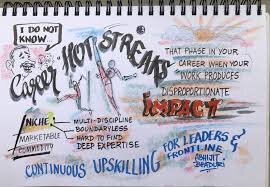 I DO NOT
KNOW...
Career HOT STREAKS
THAT PHASE IN YOUR
CAREER WHEN YOUR
WORK PRODUCES
DISPROPORTIONATE
IMPACT
NICHE
MARKETABLE
COMMODITY
MULTI-DISCIPLINE
BOUNDARYLESS
HARD TO FIND
DEEP EXPERTISE
FOR LEADERS &
FRONTLINE
CONTINUOUS UPSKILLING
ABHIJIT
BHADURI